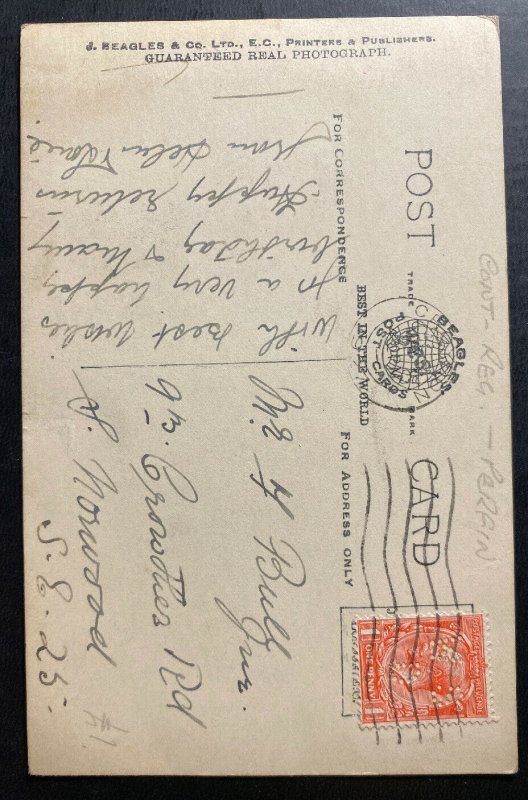 J. BEAGLES & CO. LTD., E.C., PRINTERS & PUBLISHERS.
GUARANTEED REAL PHOTOGRAPH.
POST CARD
TRADE MARK
BEAGLES'
POST-CARDS
BEST IN THE WORLD
FOR CORRESPONDENCE
FOR ADDRESS ONLY
With Best Wishes
to a very happy
birthday & many
Happy returns
from
Mr Bull
Jnr.
93. Crowther Rd
S. Norwood
S.E. 25.
ONE PENNY
CONT-REG. - PERFIN
#1